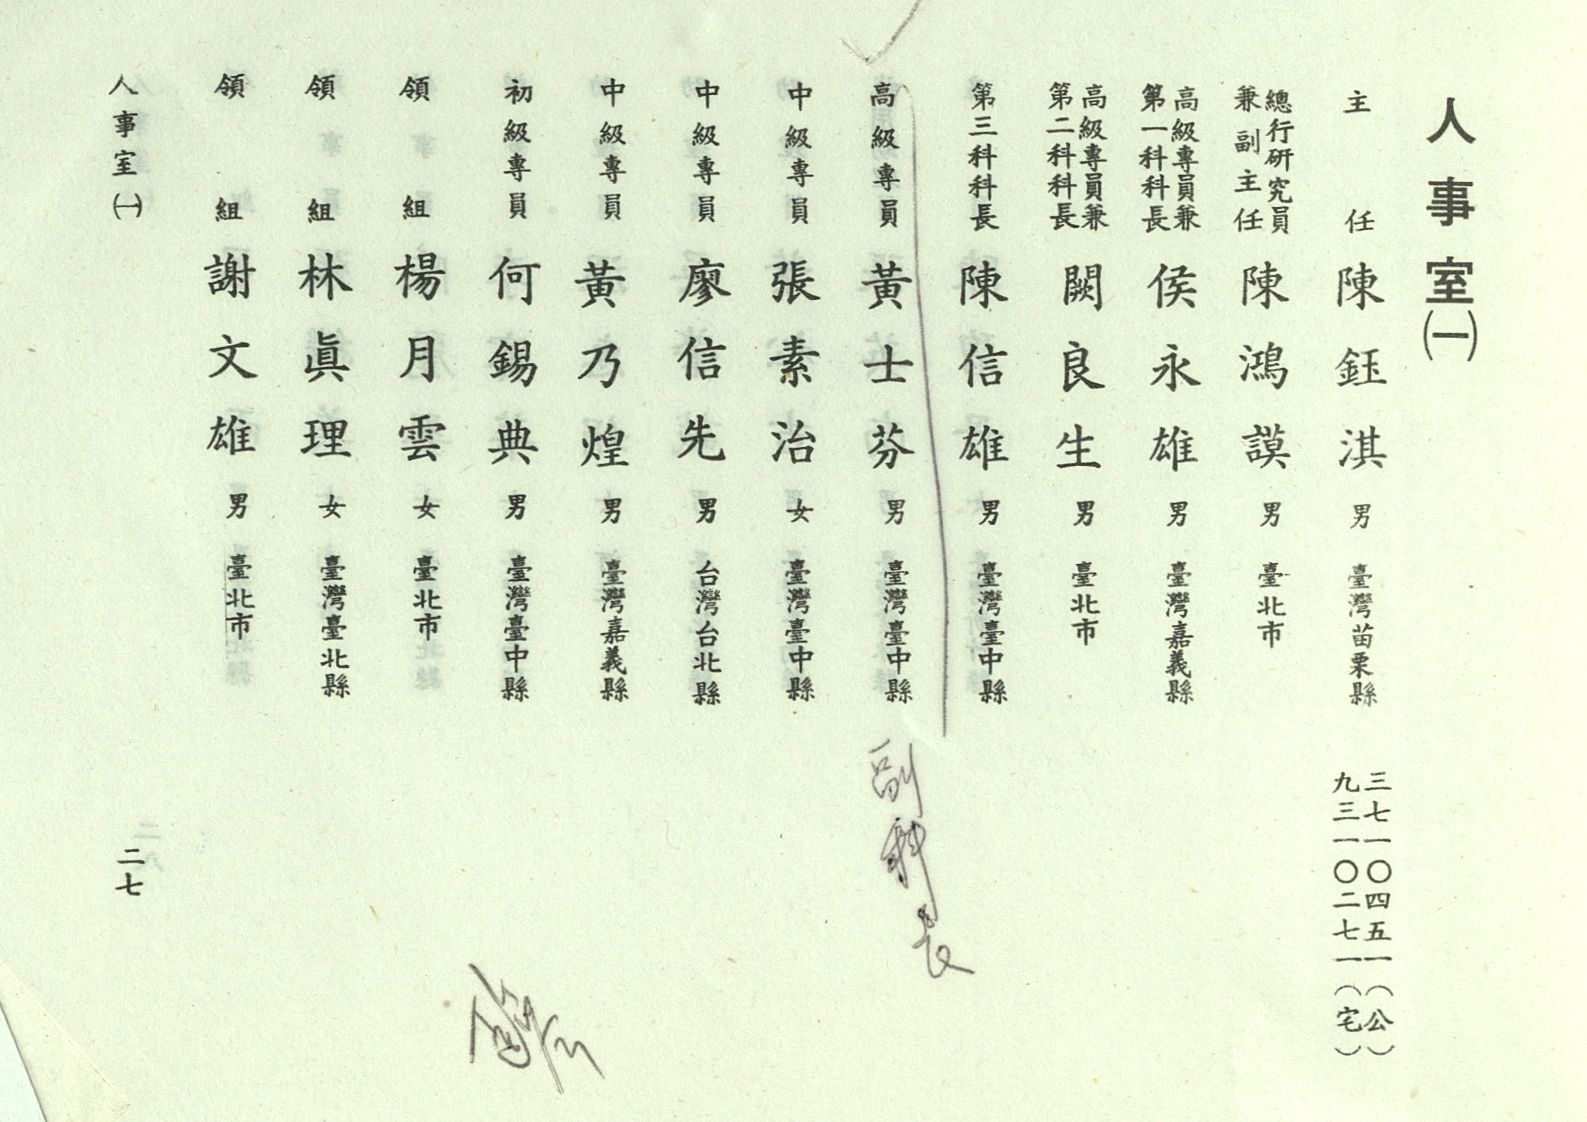 人事室㈠
主任 陳鈺淇 男 臺灣苗栗縣 三七一〇四五一（公）
九三一〇二七一（宅）
總行研究員
兼副主任 陳鴻謨 男 臺北市
高級專員兼
第一科科長 侯永雄 男 臺灣嘉義縣
高級專員兼
第二科科長 闕良生 男 臺北市
第三科科長 陳信雄 男 臺灣臺中縣
高級專員 黃士芬 男 臺灣臺中縣 副科長
中級專員 張素治 女 臺灣臺中縣
中級專員 廖信先 男 台灣台北縣
中級專員 黃乃煌 男 臺灣嘉義縣
初級專員 何錫典 男 臺灣臺中縣
領組 楊月雲 女 臺北市
領組 林眞理 女 臺灣臺北縣
領組 謝文雄 男 臺北市
人事室㈠ 二七